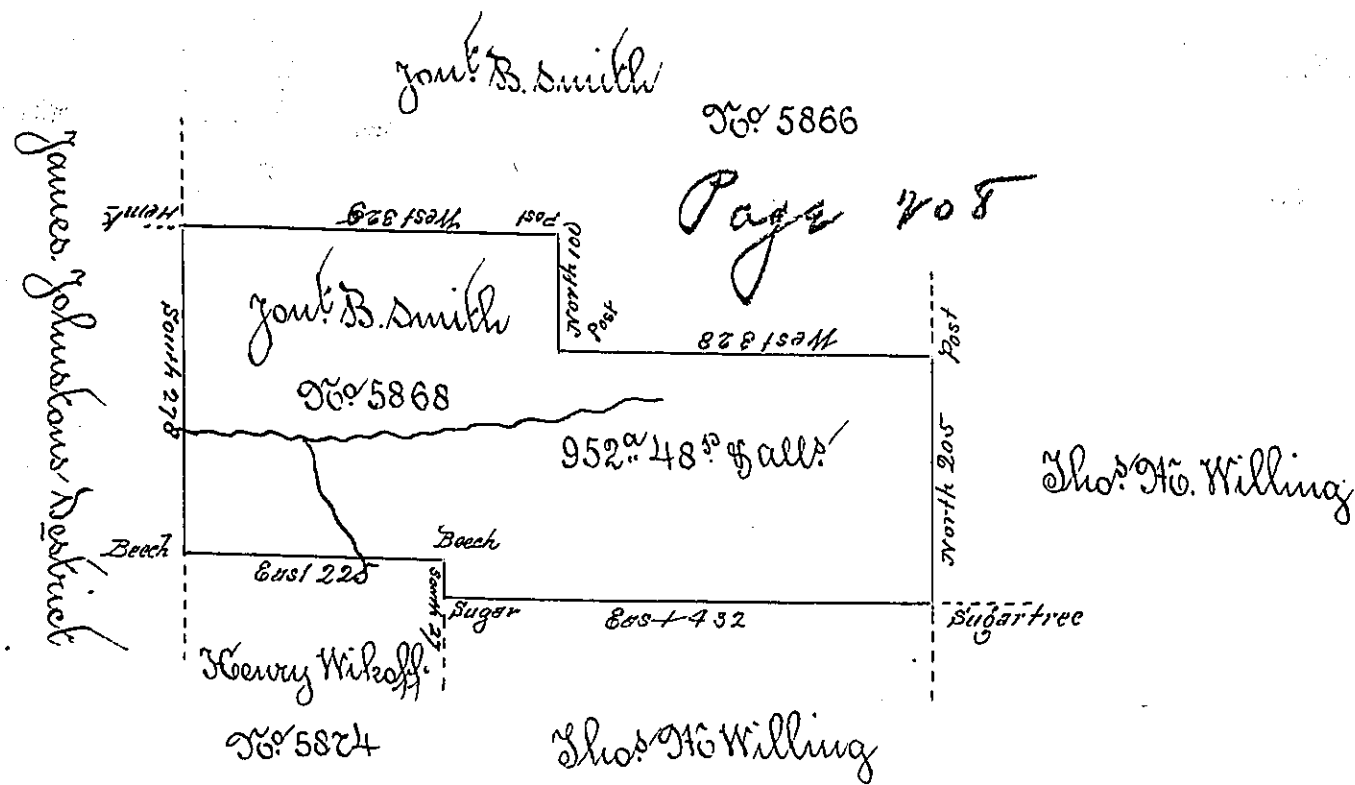 Jont. B. Smith
No. 5866
Page 708
James Johnstons Destrict
Heml'k
West 329
Post
North 101
Post
West 328
Post
South 278
Jont. B. Smith
No. 5868
952a 48p & alls.
North 205
Thos. M. Willing
Beech
East 225
Beech
South 27
Sugar
East 432
Sugartree
Henry Wikoff.
No. 5824
Thos. M Willing